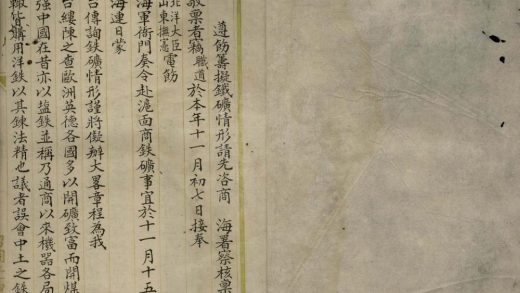 遵飭籌擬鐵礦情形請先咨商 海署察核稟
敬稟者竊職道於本年十一月初七日接奉
北洋大臣
山東撫憲
電飭
海軍衙門奏令赴滬面商鉄礦事宜於十一月十五
海連日蒙
台傳詢鉄礦情形謹將儗辦大畧章程為我
台縷陳之查歐洲英德各國多以開礦致富而開煤
強中國在昔亦以塩鉄並稱乃通商以來機器各局
輙皆購用洋鉄以其鍊法精也議者誤會中土之鉄